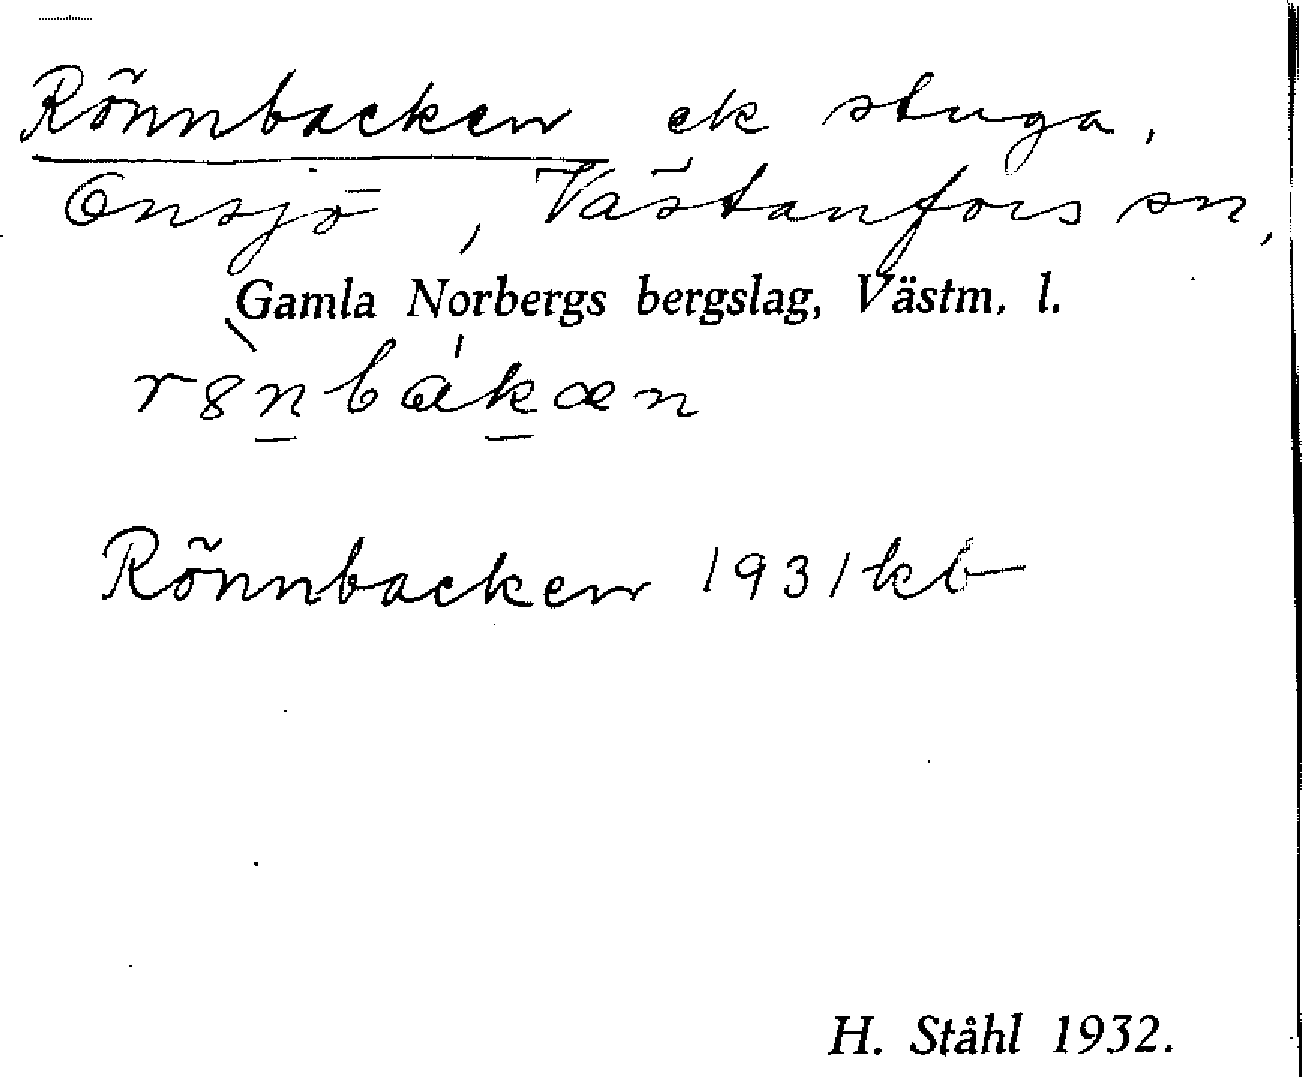 Rönnbacken ek stuga,
Onsjö, Västanfors sn,
Gamla Norbergs bergslag, Västm. l.
Rönnbacken 1931 kb
H. Ståhl 1932.